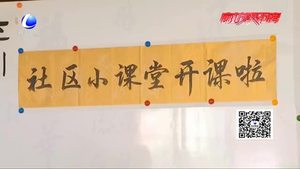 社区小课堂开课啦